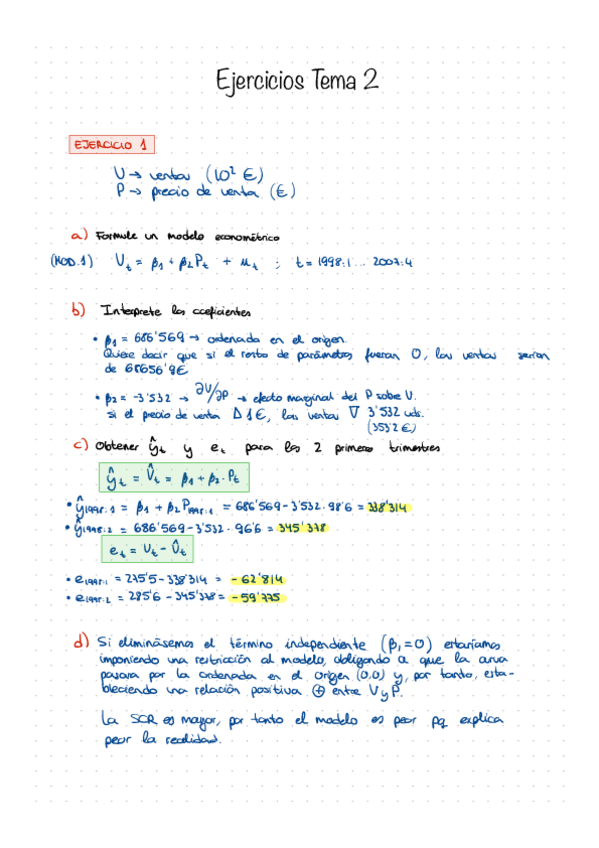 Ejercicios Tema 2
EJERCICIO 1
V → ventas (10² €)
P → precio de venta (€)
a) Formule un modelo econométrico
(MOD.1) Vt = β1 + β2Pt + ut ; t = 1998:1 ... 2007:4
b) Interprete los coeficientes
• β1 = 686'569 → ordenada en el origen.
Quiere decir que si el resto de parámetros fueran 0, las ventas serían
de 68656'9€
• β2 = -3'532 → ∂V/∂P → efecto marginal del P sobe V.
si el precio de venta Δ 1€, las ventas ∇ 3'532 uds.
(353'2€)
c) Obtener ŷt y et para los 2 primeros trimestres
ŷt = V̂t = β1 + β2 · Pt
• ŷ1998:1 = β1 + β2 P1998:1 = 686'569 - 3'532 · 98'6 = 338'314
• ŷ1998:2 = 686'569 - 3'532 · 96'6 = 345'378
et = Ut - Ût
• e1998:1 = 275'5 - 338'314 = -62'814
• e1998:2 = 285'6 - 345'378 = -59'775
d) Si eliminásemos el término independiente (β1=0) estaríamos
imponiendo una restricción al modelo, obligando a que la curva
pasara por la ordenada en el origen (0.0) y, por tanto, esta-
bleciendo una relación positiva ⊕ entre V y P.
La SCR es mayor, por tanto el modelo es peor pq explica
peor la realidad.